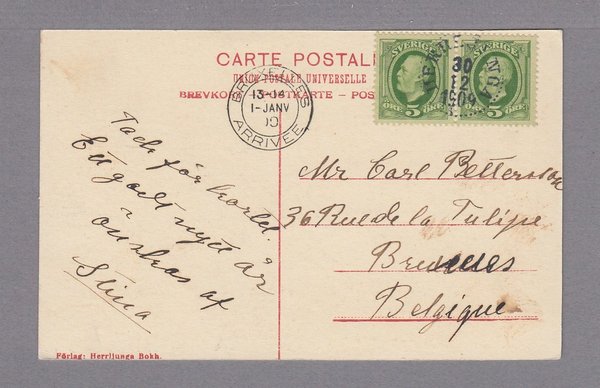 CARTE POSTALE
UNION POSTALE UNIVERSELLE
BREVKORT
SVERIGE
ÖRE 5 ÖRE
SVERIGE
ÖRE 5 ÖRE
30
12
BRUXELLES
13-14
1-JANV
ARRIVEE
Tack för kortet.
Ett godt nytt år
önskas af
Stina
Mr Carl Betternsson
36 Rue de la Tulipe
Bruxelles
Belgique
Förlag: Herrljunga Bokh.